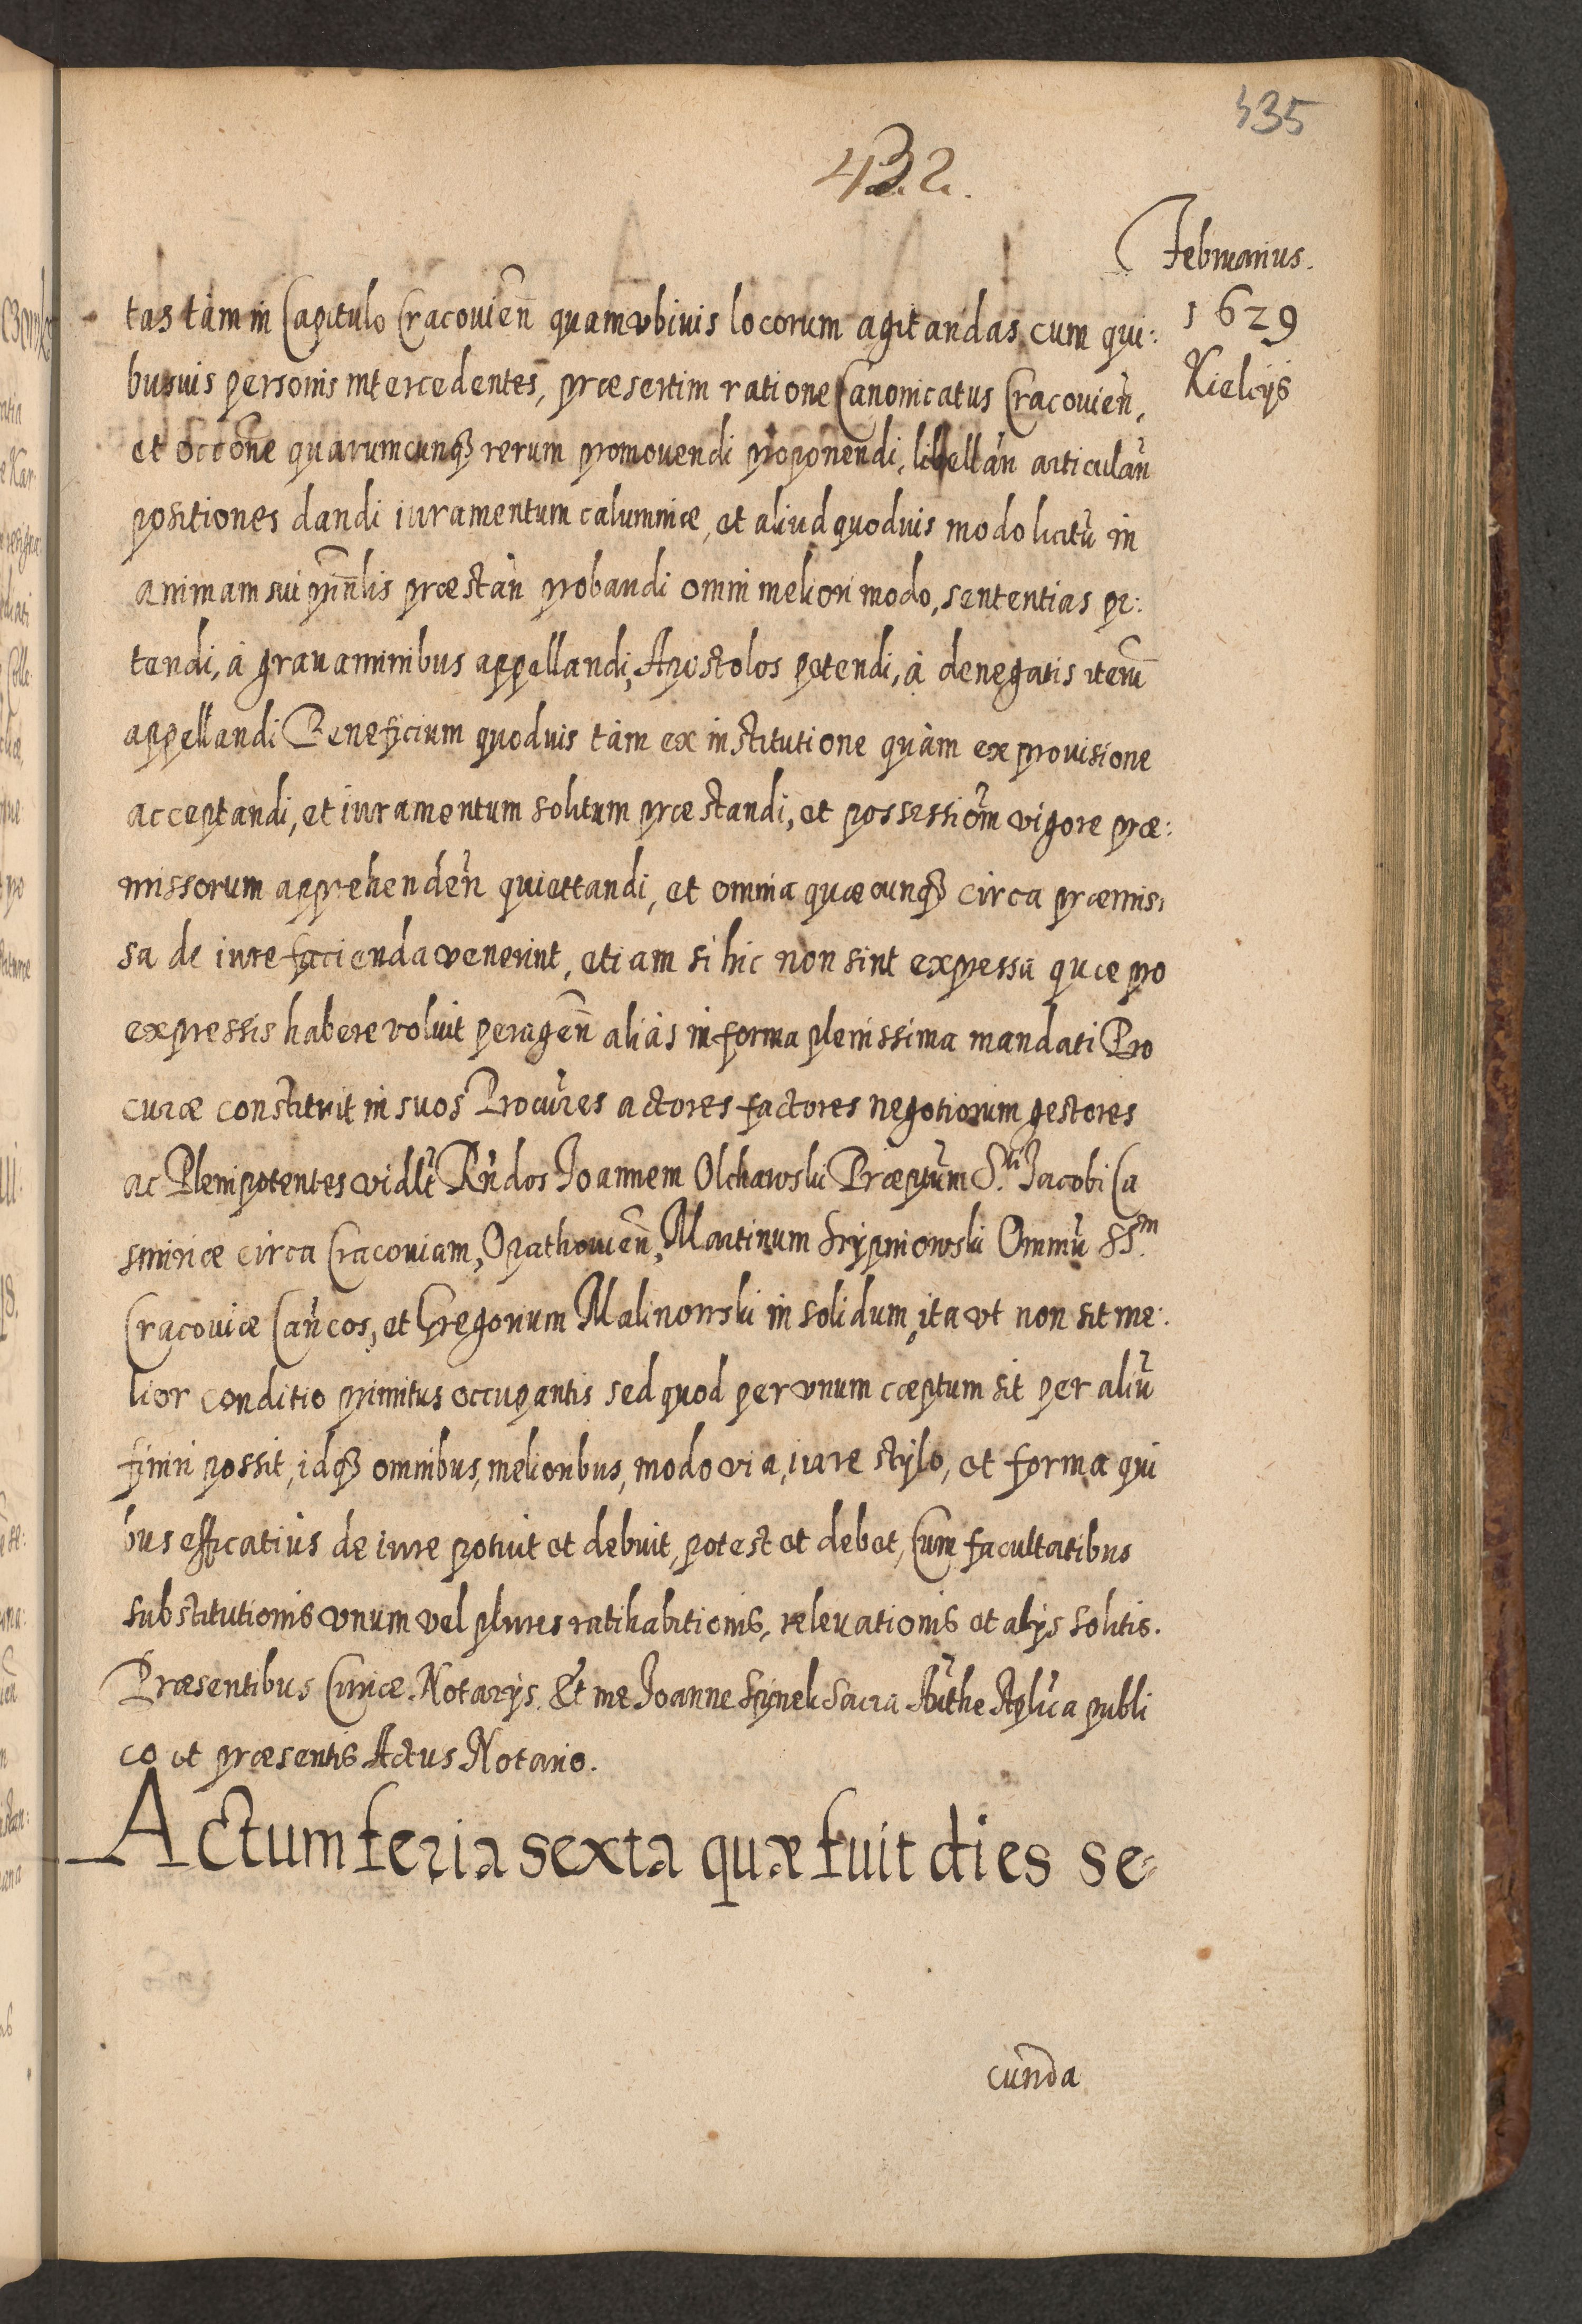 435
432.
Februarius.
1629
Kielcijs
tas tàm in Capitulo Cracouien̄ quam vbiuis locorum agitandas cum qui:
busuis personis intercedentes, præsertim ratione Canonicatus Cracouien̄,
et occōne quarumcunqȝ rerum promouendi proponendi, libellan̄ articulan̄
positiones dandi iuramentum calumniæ, et aliud quoduis modo licitū in
animam sui prīn̄lis præstan̄ probandi omni meliori modo, sententias pe:
tendi, à grauaminibus appellandi, Apostolos petendi, à denegatis iterū
appellandi Beneficium quoduis tàm ex institutione quàm ex prouisione
acceptandi, et iuramentum solitum præstandi, et possessiōm vigore præ:
missorum apprehenden̄ quiettandi, et omnia quæcunqȝ circa præmis:
sa de iure facienda venerint, etiam si hic non sint expressa quæ pro
expressis habere voluit peragen̄ aliàs in forma plenissima mandati Pro
curæ constituit in suos Procūres actores factores negotiorum gestores
ac Plenipotentes vidlt̄ Rn̄dos Joannem Olchawski Præptūm S.ti Jacobi Ca
smiriæ circa Cracouiam, Opathouien̄, Martinum Skrypniowski Omniū SS.m
Cracouiæ Can̄cos, et Gregorium Malinowski in solidum, ita vt non sit me:
lior conditio primitus occupantis sed quod per vnum cæptum sit per aliū
finiri possit, idqȝ omnibus, melioribus, modo via, iure stylo, et forma qui
bus efficatiùs de iure potuit et debuit, potest et debet, Cum facultatibus
substitutionis vnum vel plures ratihabitionis, releuationis et alijs solitis.
Præsentibus Curiæ Notarijs. Et me Joanne Sacra Aūthe Aplīca publi
co et præsentis Actus Notario.
Actum feria sexta quæ fuit dies se=
cunda